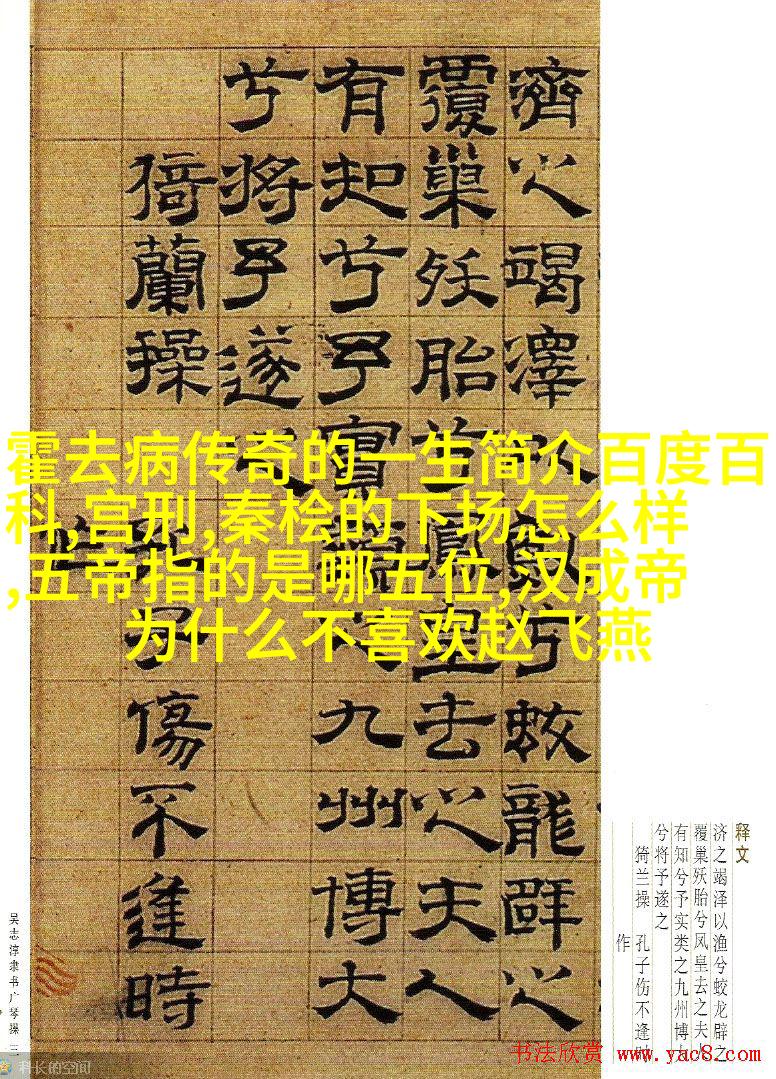 霍去病传奇的一生简介百度百
科,宫刑,秦桧的下场怎么样
,五帝指的是哪五位,汉成帝
为什么不喜欢赵飞燕
濟之竭澤以漁兮蛟龍辟之
覆巢殀胎兮鳳皇去之夫人
有知兮予實類之九州博大
兮將予遂之
猗蘭操 孔子傷不逢時
作
释文
济之竭泽以渔兮蛟龙辟之
覆巢殀胎兮凤皇去之夫
有知兮予实类之九州博
兮将予遂之
猗兰操 孔子伤不逢时
作
吴志淳隶书广琴操 三
科长的空间
书法欣赏 www.yac8.com